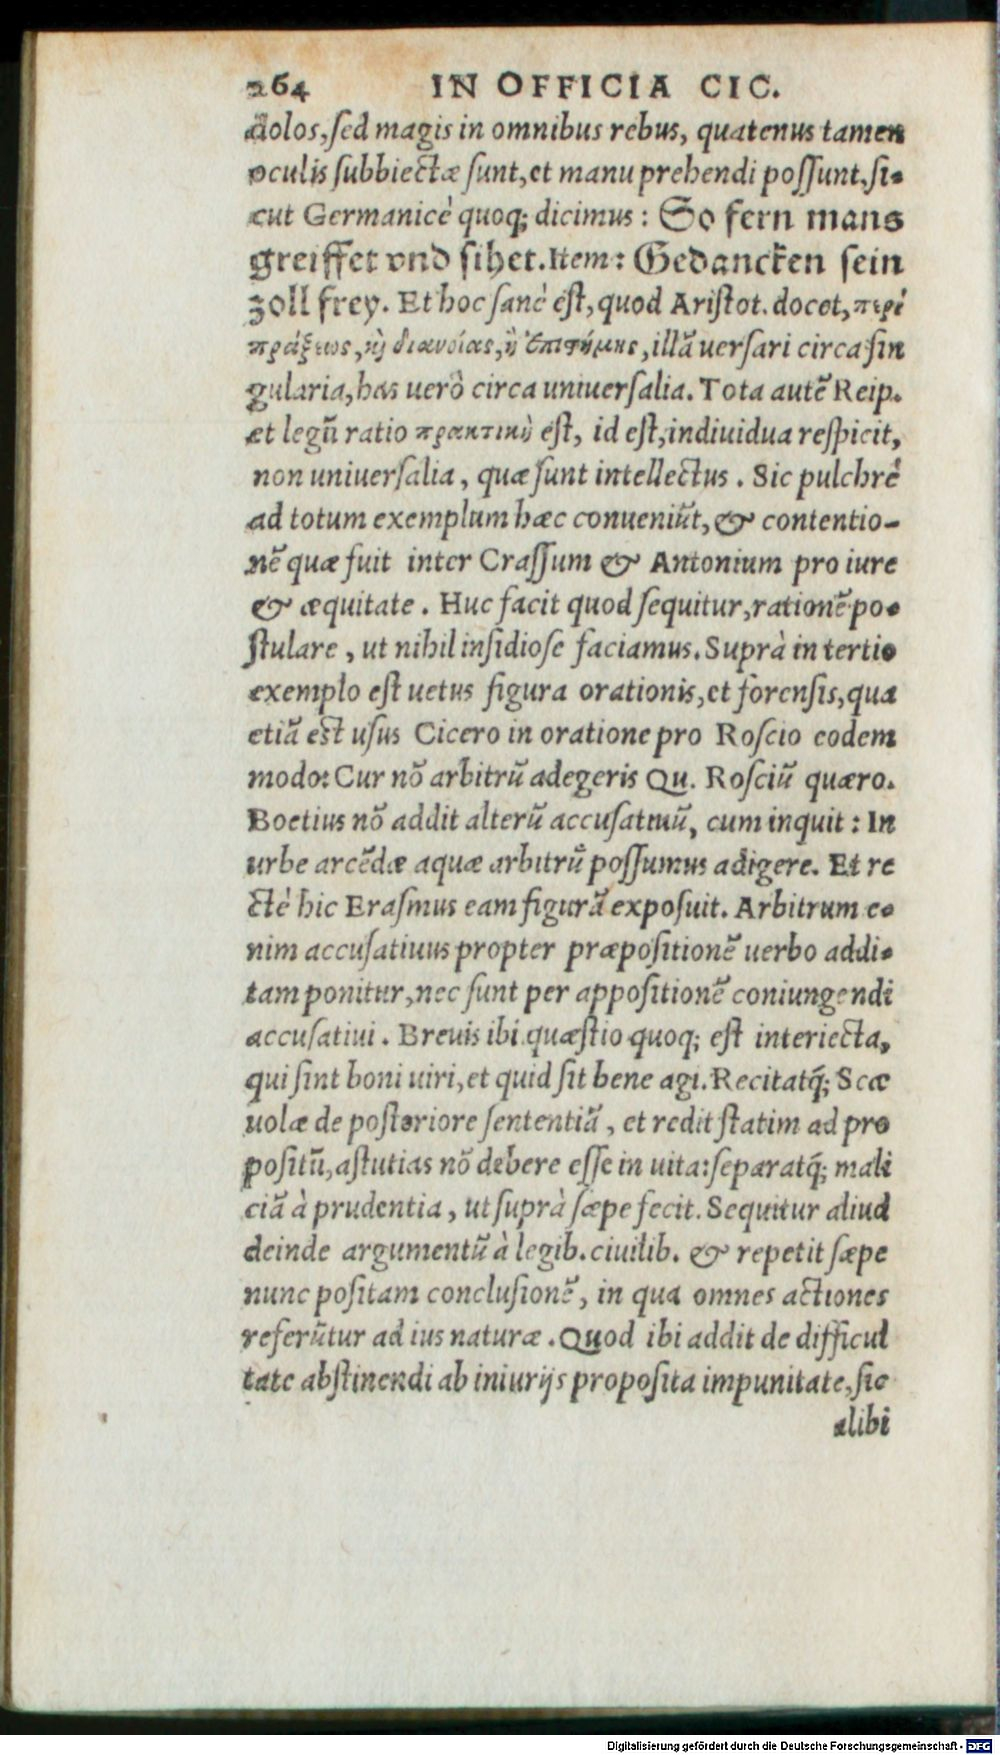 264 IN OFFICIA CIC.
dolos, sed magis in omnibus rebus, quatenus tamen
oculis subbiectæ sunt, et manu prehendi possunt, si-
cut Germanicè quoq; dicimus: So fern mans
greiffet vnd sihet. Item: Gedancken sein
zoll frey. Et hoc sanè est, quod Aristot. docet, περὶ
πράξεως, καὶ διανοίας, ἢ ἐπιστήμης, illã uersari circa sin
gularia, has uerò circa uniuersalia. Tota autẽ Reip.
et legũ ratio πρακτικὴ est, id est, indiuidua respicit,
non uniuersalia, quæ sunt intellectus. Sic pulchrè
ad totum exemplum hæc conueniũt, & contentio-
nẽ quæ fuit inter Crassum & Antonium pro iure
& æquitate. Huc facit quod sequitur, rationẽ po-
stulare, ut nihil insidiose faciamus. Suprà in tertio
exemplo est uetus figura orationis, et forensis, qua
etiã est usus Cicero in oratione pro Roscio eodem
modo: Cur nõ arbitrũ adegeris Qu. Rosciũ quæro.
Boetius nõ addit alterũ accusatiuũ, cum inquit: In
urbe arcẽdæ aquæ arbitrũ possumus adigere. Et re
ctè hic Erasmus eam figurã exposuit. Arbitrum e-
nim accusatiuus propter præpositionẽ uerbo addi-
tam ponitur, nec sunt per appositionẽ coniungendi
accusatiui. Breuis ibi quæstio quoq; est interiecta,
qui sint boni uiri, et quid sit bene agi. Recitatq́; Scæ
uolæ de posteriore sententiã, et redit statim ad pro
positũ, astutias nõ debere esse in uita: separatq́; mali
ciã à prudentia, ut suprà sæpe fecit. Sequitur aliud
deinde argumentũ à legib. ciuilib. & repetit sæpe
nunc positam conclusionẽ, in qua omnes actiones
referũtur ad ius naturæ. Quod ibi addit de difficul
tate abstinendi ab iniurijs proposita impunitate, sic
alibi
Digitalisierung gefördert durch die Deutsche Forschungsgemeinschaft - DFG